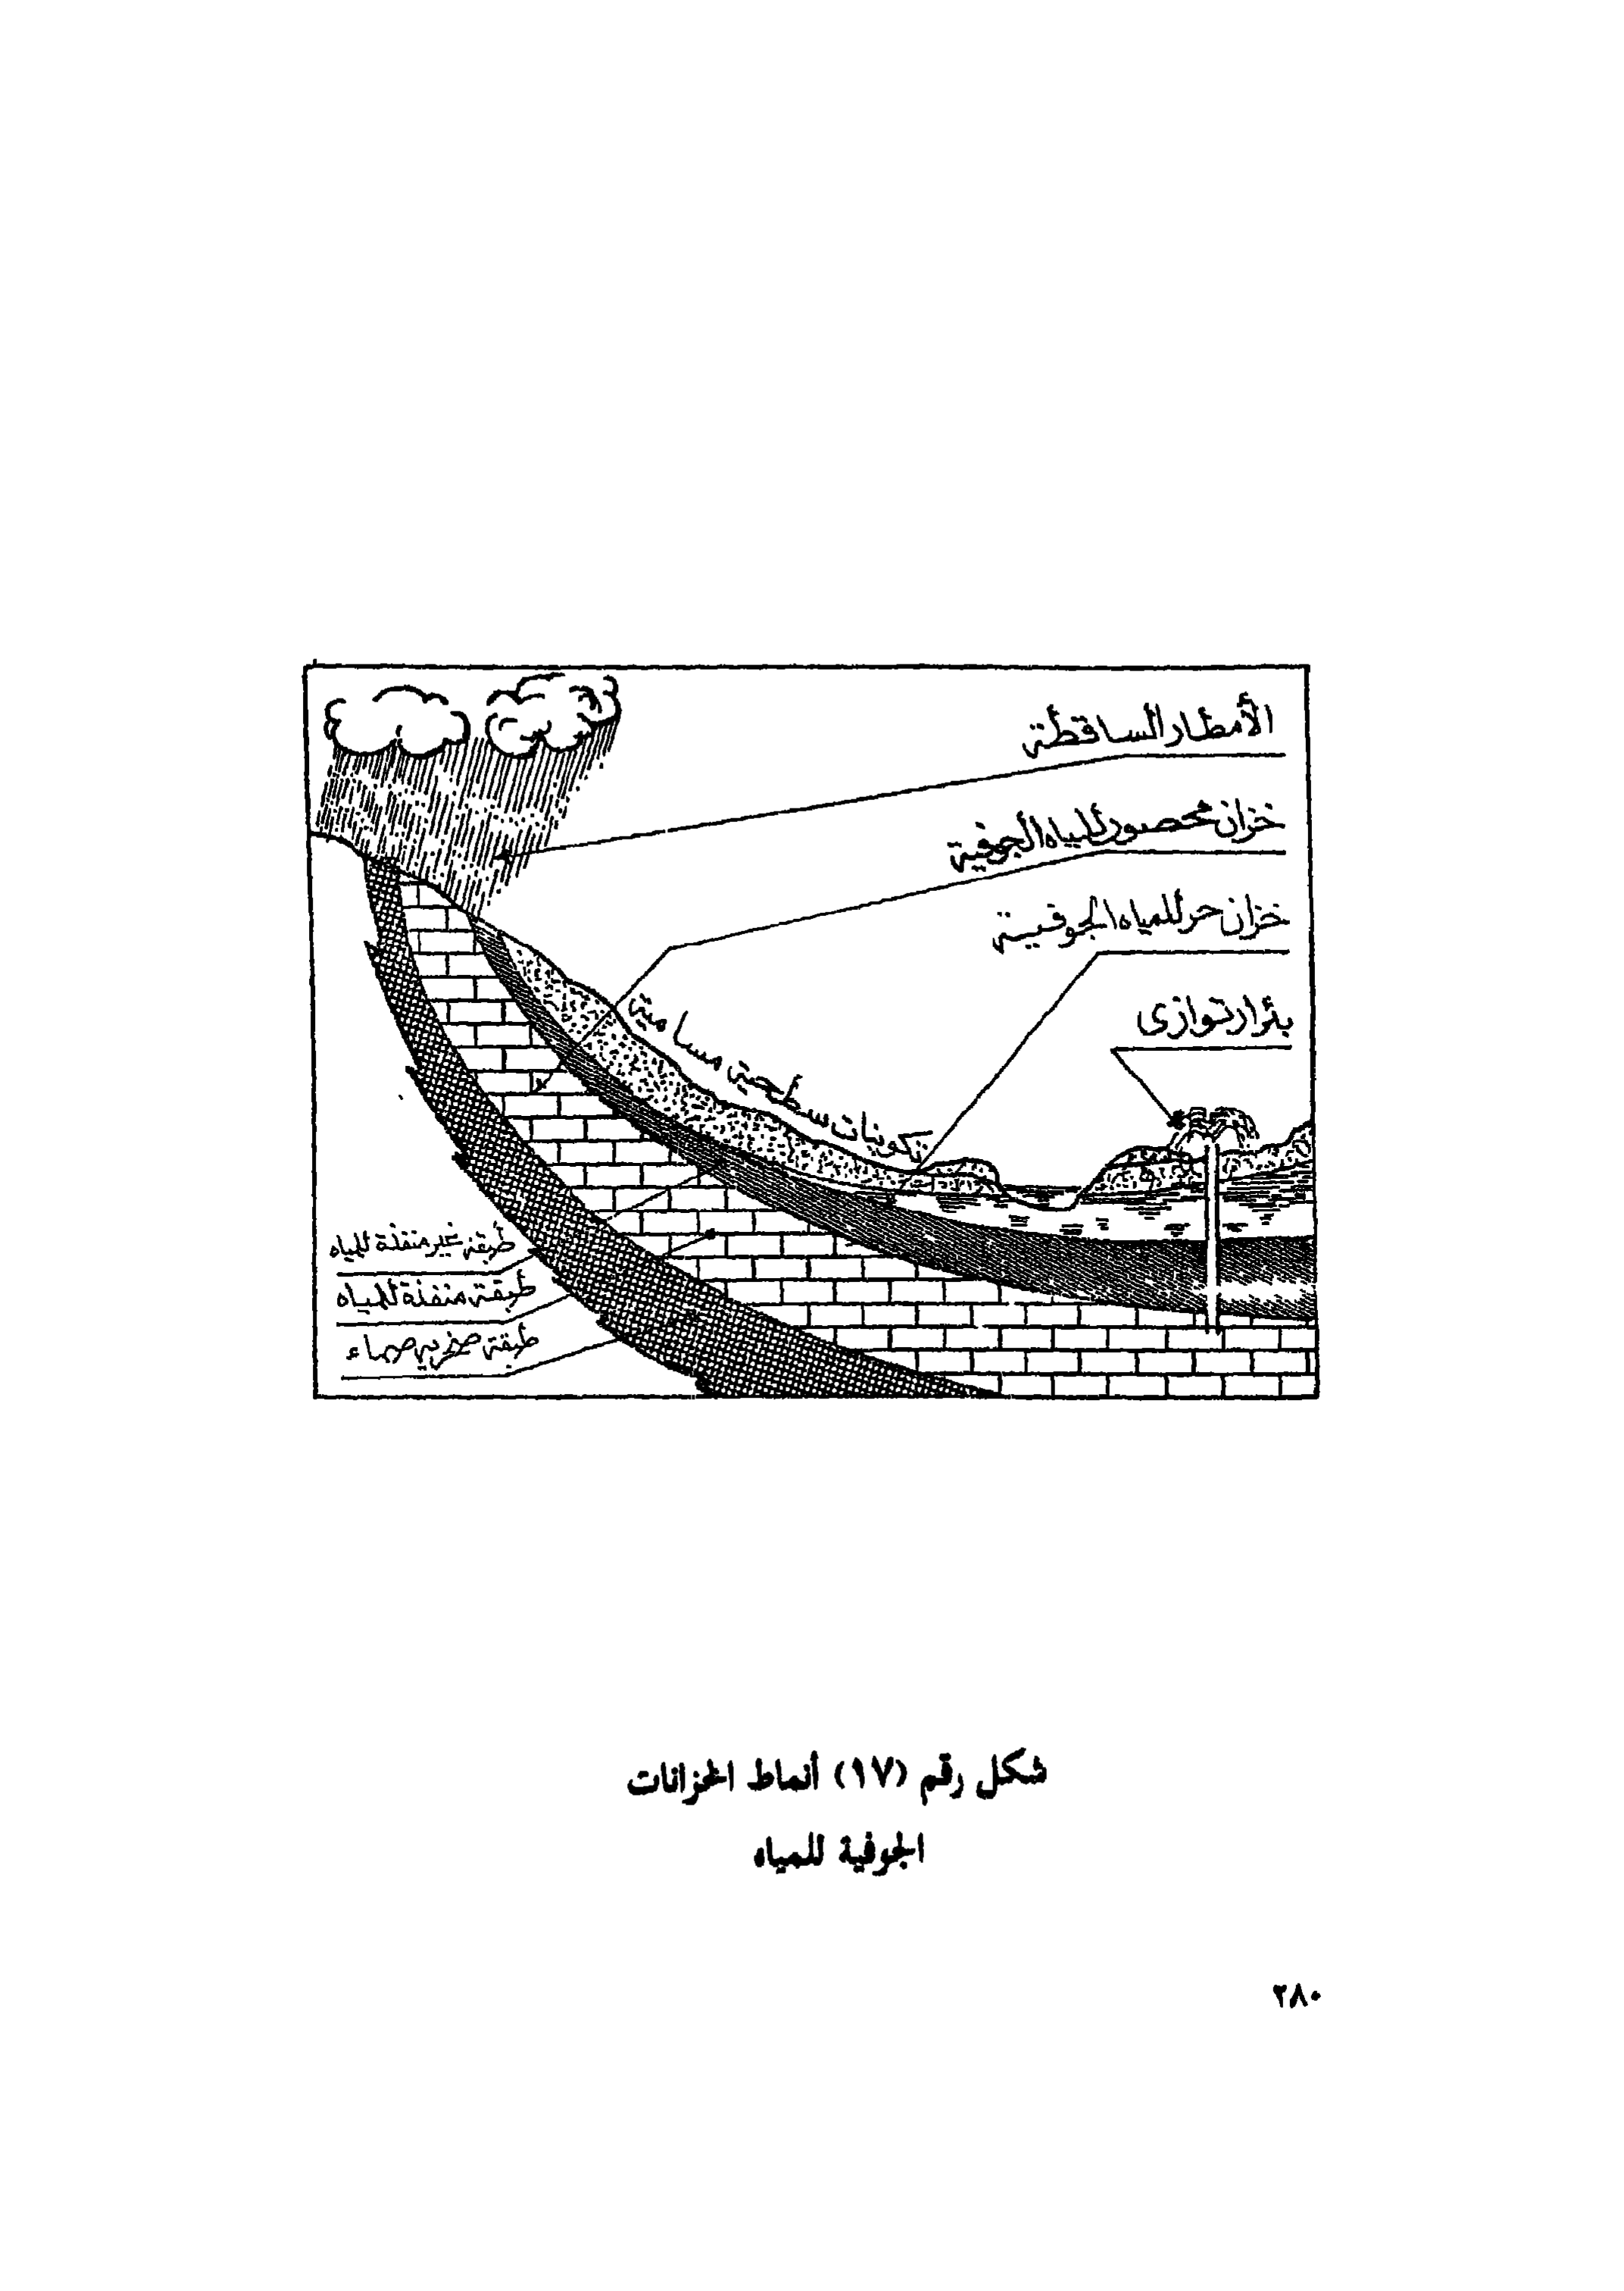 الأمطار الساقطة
خزان محصور للمياه الجوفية
خزان حر للمياه الجوفية
بئر ارتوازى
تكوينات سطحية مسامية
طبقة غير منفذة للمياه
طبقة منفذة للمياه
طبقة صخرية صماء
شكل رقم (١٧) أنماط الخزانات
الجوفية للمياه
٢٨٠